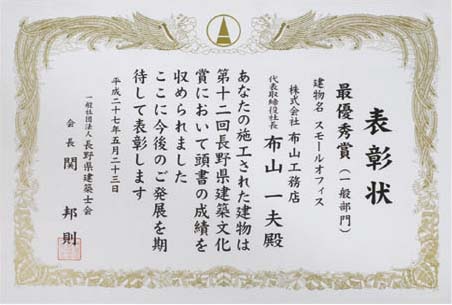 表彰状
最優秀賞(一般部門)
建物名 スモールオフィス
株式会社 布山工務店
代表取締役社長 布山 一夫殿
あなたの施工された建物は
第十二回長野県建築文化
賞において頭書の成績を
収められました
ここに今後のご発展を期
待して表彰します
平成二十七年五月二十三日
一般社団法人 長野県建築士会
会長 関 邦則